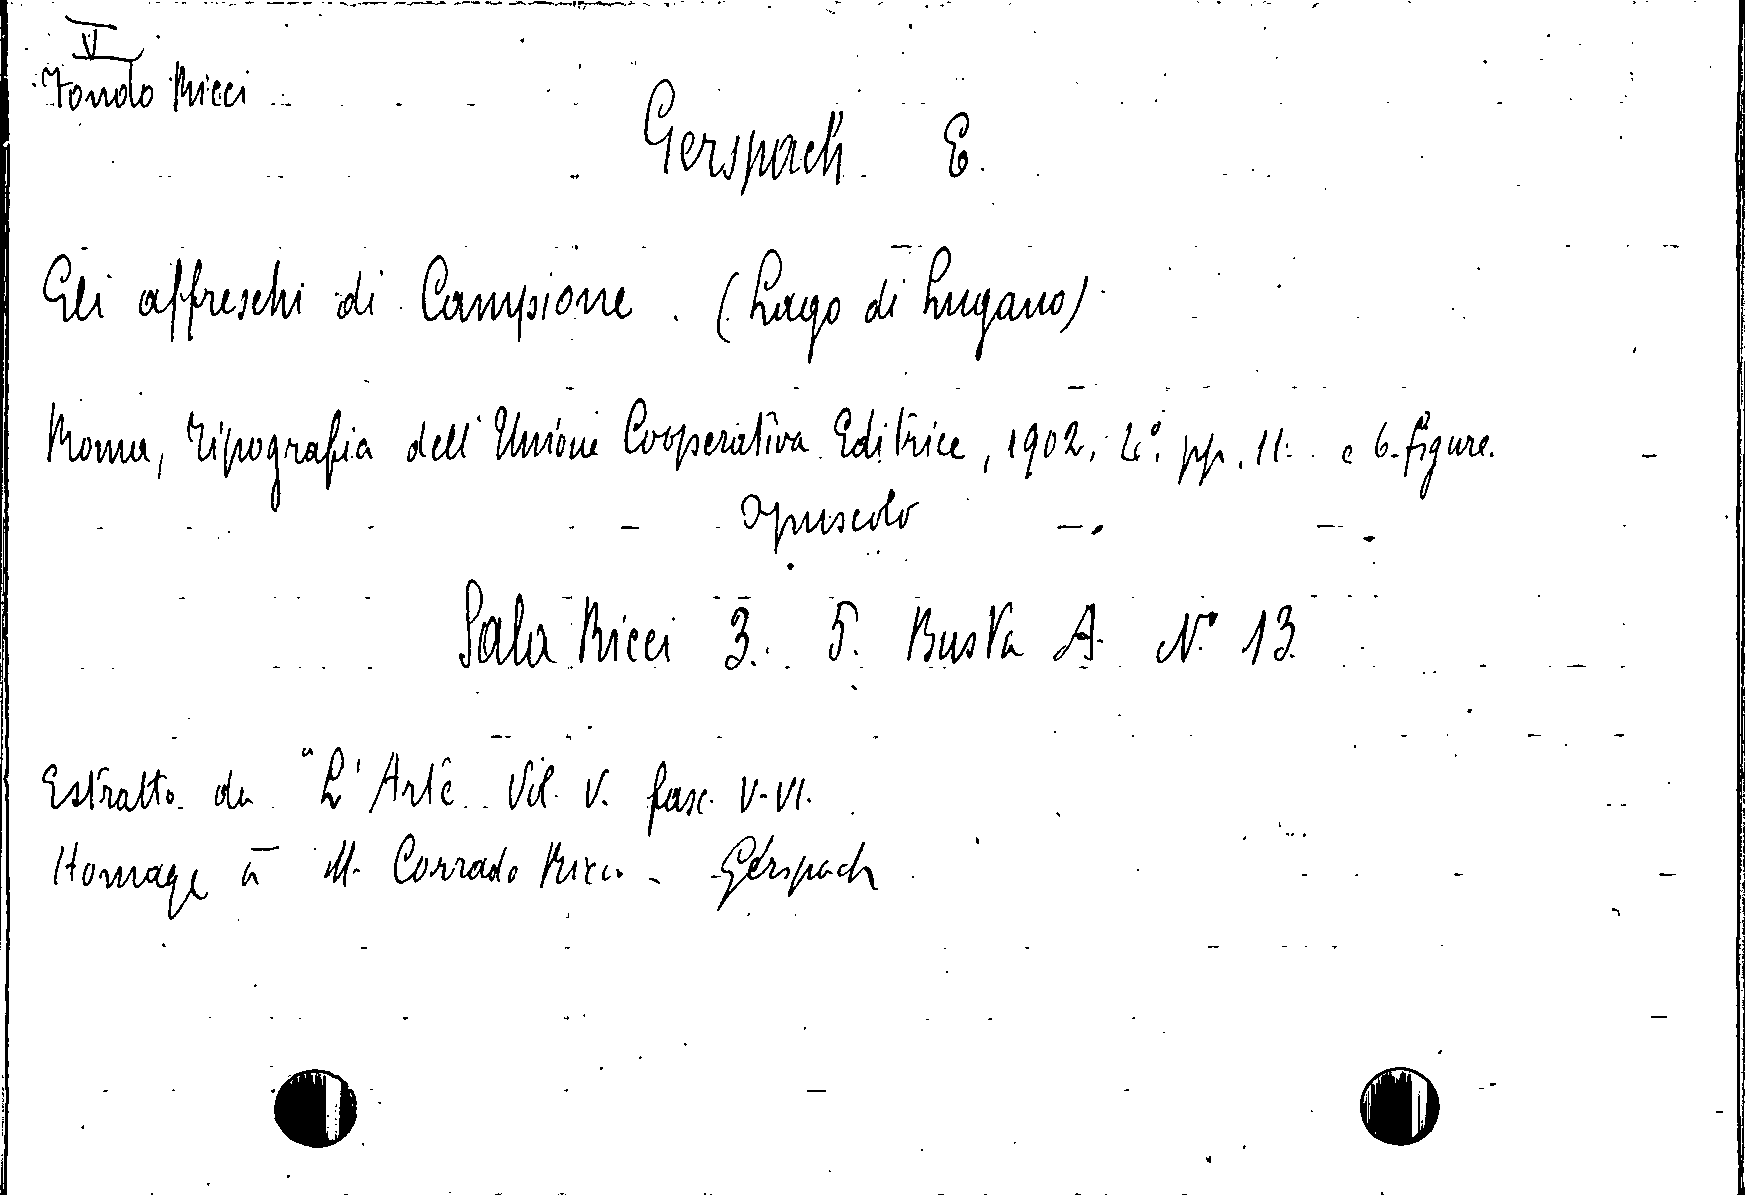 V
Fondo Ricci
Gerspach E.
Gli affreschi di Campione. (Lago di Lugano)
Roma, Tipografia dell'Unione Cooperativa Editrice, 1902. 4°. pp. 11. e 6. figure.
Opuscolo
Sala Ricci 3. 5. Busta A. N° 13.
Estratto da "L'Arte Vol. V. fasc. V-VI.
Homage à M. Corrado Ricci - Gerspach